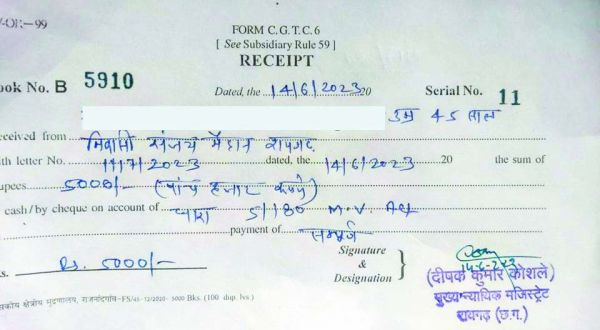 V-OR-99
FORM C.G.T.C. 6
[ See Subsidiary Rule 59 ]
RECEIPT
ook No. B 5910 Dated, the 14/6/2023 20 Serial No. 11
उम्र 45 साल
eceived from निवासी संजय मैदान रायगढ़
ith letter No. 1171/2023 dated, the 14/6/2023 20 the sum of
upees 5000/- (पांच हजार रूपये)
cash/by cheque on account of धारा 5/180 M.V. Act
payment of सम्पूर्ण
Signature & Designation
s. Rs. 5000/-
(दीपक कुमार कोशले)
मुख्य न्यायिक मजिस्ट्रेट
रायगढ़ (छ.ग.)
सकीय क्षेत्रीय मुद्रणालय, राजनांदगाँव-FS/45-12/2020- 5000 Bks. (100. dup. lvs.)